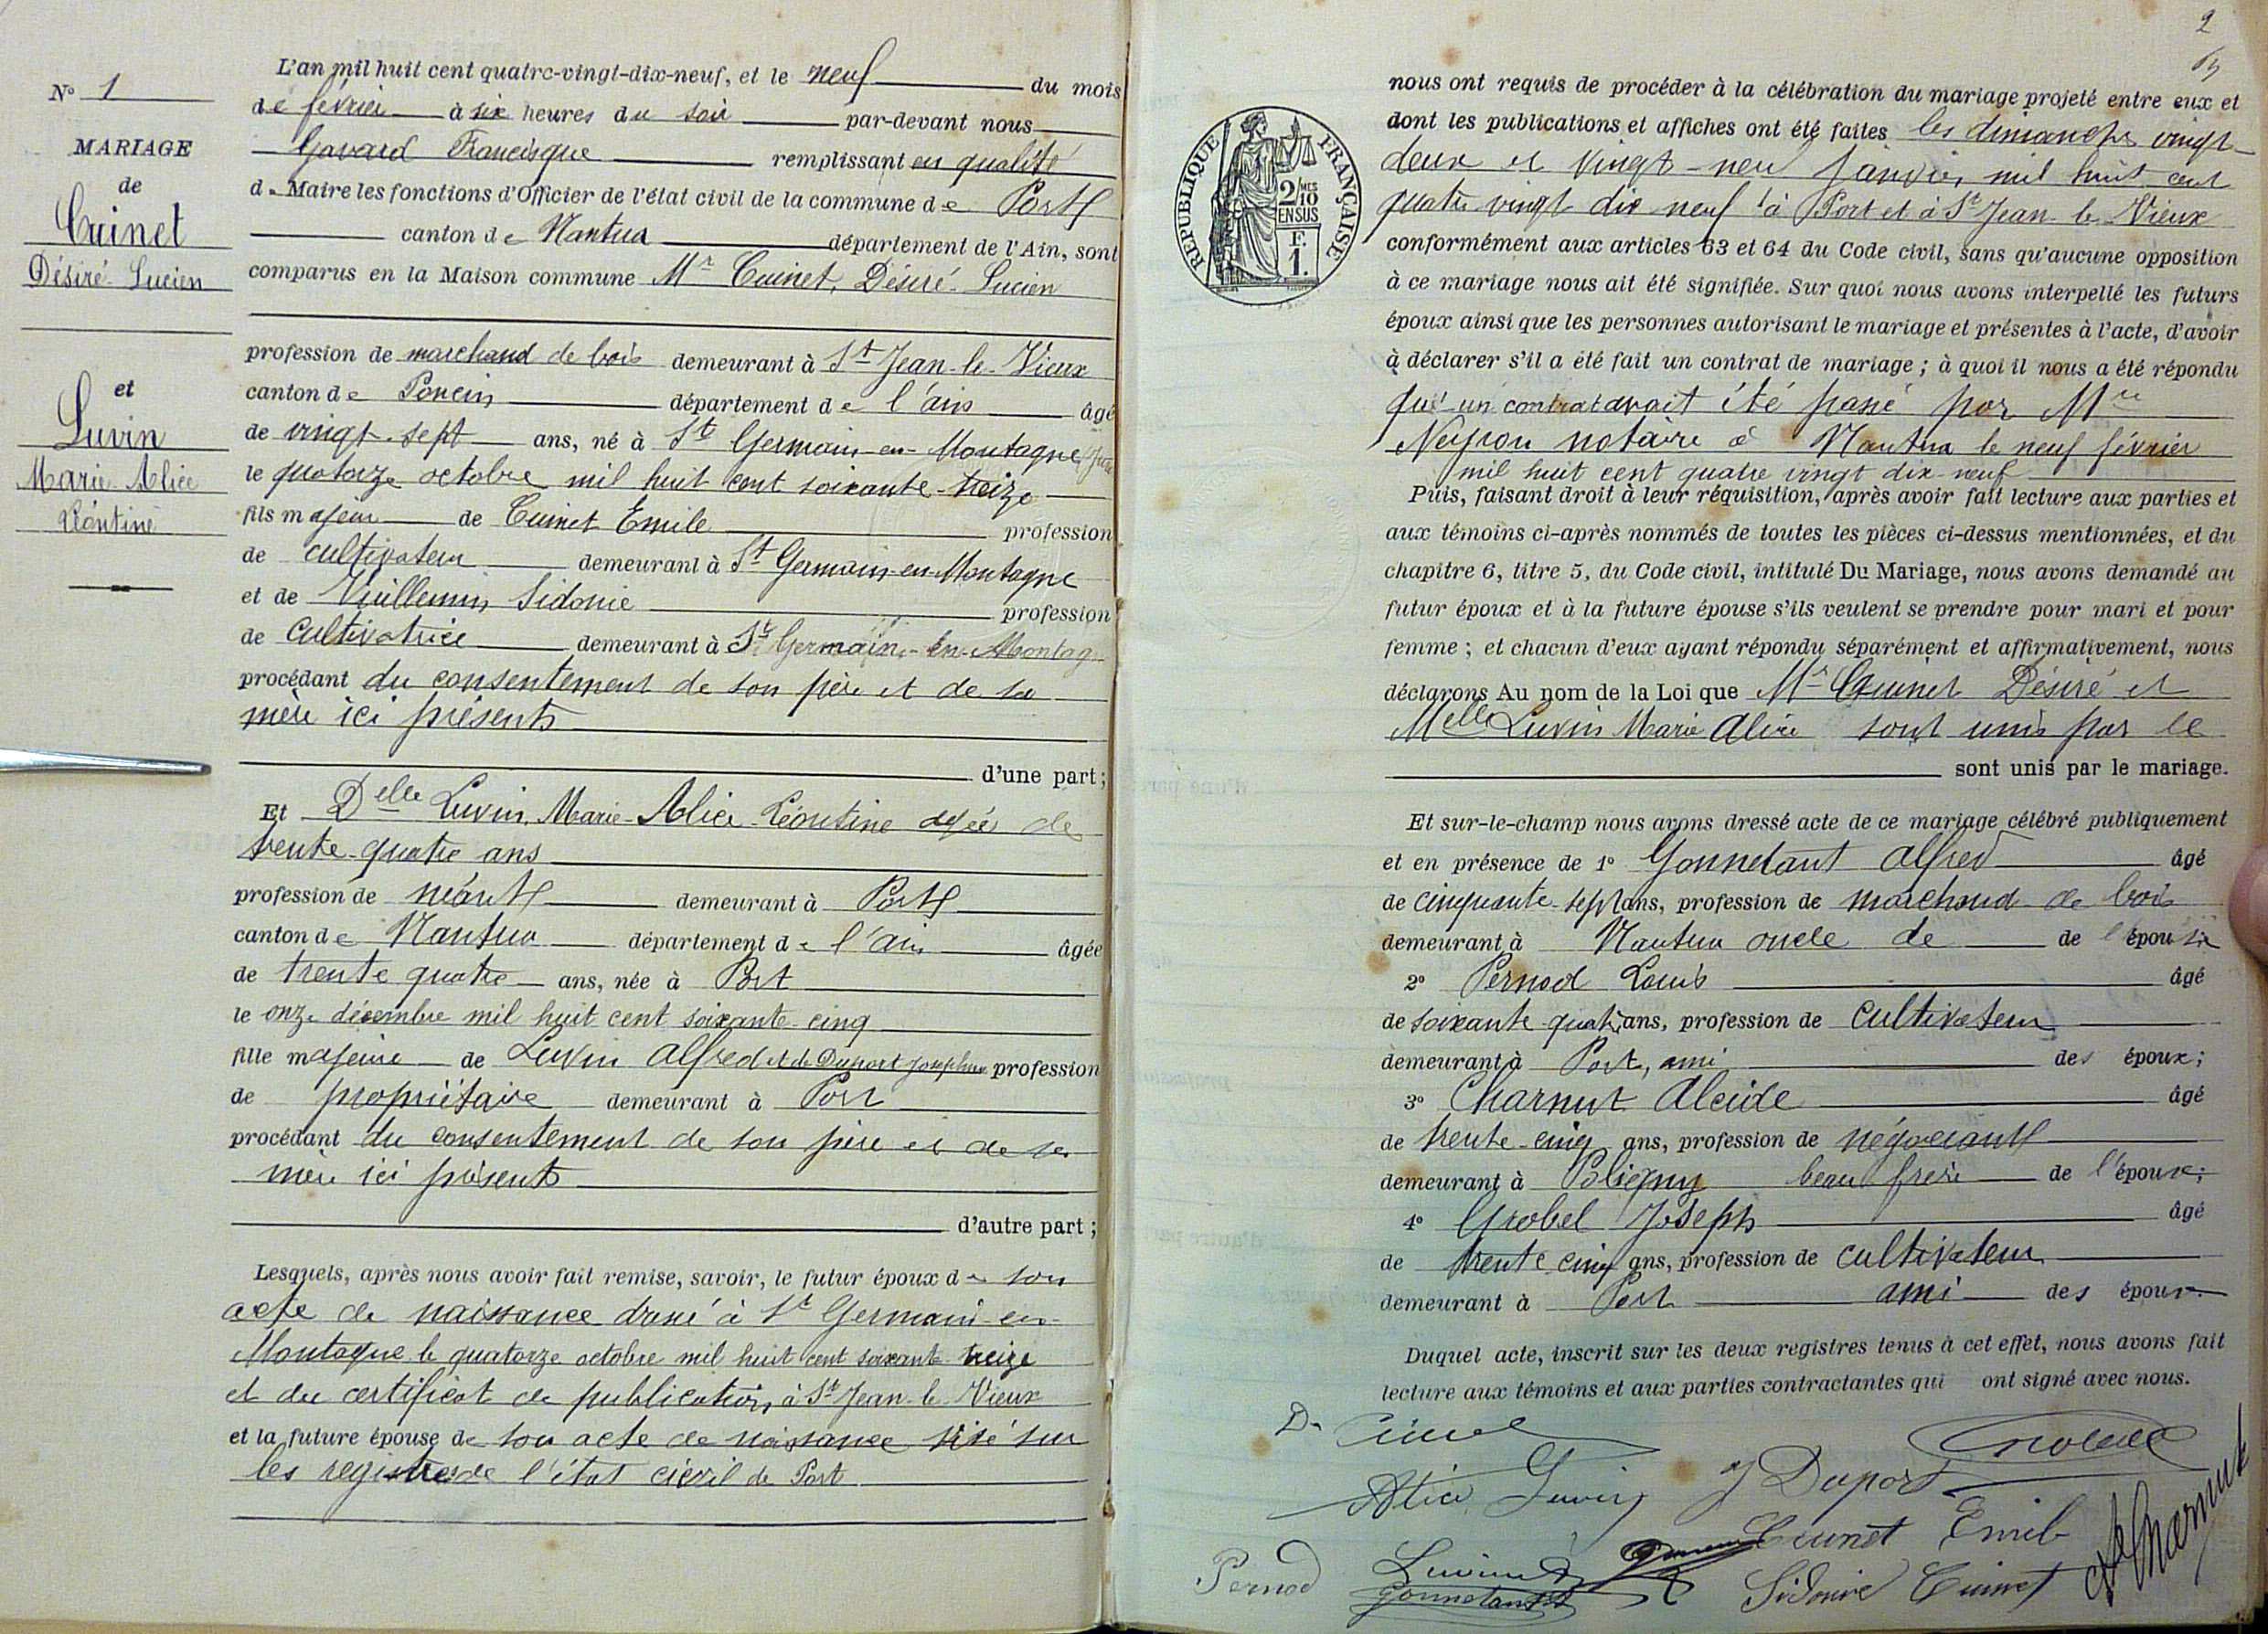 N° 1
MARIAGE
de
Cuinet
Désiré-Lucien
et
Luvin
Marie-Alice
Léontine
L'an mil huit cent quatre-vingt-dix-neuf, et le neuf du mois
de février à six heures du soir par-devant nous
Gavard Francisque remplissant en qualité
de Maire les fonctions d'Officier de l'état civil de la commune de Port
canton de Nantua département de l'Ain, sont
comparus en la Maison commune Mr Cuinet, Désiré-Lucien
profession de marchand de bois demeurant à St Jean-le-Vieux
canton de Poncin département de l'ain âgé
de vingt-sept ans, né à St Germain-en-Montagne
le quatorze octobre mil huit cent soixante-treize
fils majeur de Cuinet Emile profession
de cultivateur demeurant à St Germain-en-Montagne
et de Vuillemin Sidonie profession
de cultivatrice demeurant à St Germain-en-Montag
procédant du consentement de son père et de sa
mère ici présents
d'une part;
Et Delle Luvin, Marie-Alice-Léontine agée de
trente-quatre ans
profession de néant demeurant à Port
canton de Nantua département de l'ain âgée
de trente quatre ans, née à Port
le onze décembre mil huit cent soixante-cinq
fille majeure de Luvin Alfred et de Duport Josephine profession
de propriétaire demeurant à Port
procédant du consentement de son père et de sa
mère ici présents
d'autre part;
Lesquels, après nous avoir fait remise, savoir, le futur époux de son
acte de naissance dressé à St Germain-en-
Montagne le quatorze octobre mil huit cent soixante treize
et du certificat de publication, à St Jean-le-Vieux
et la future épouse de son acte de naissance visé sur
les registres de l'état civil de Port
2
nous ont requis de procéder à la célébration du mariage projeté entre eux et
dont les publications et affiches ont été faites les dimanches vingt-
deux et vingt-neuf Janvier mil huit cent
quatre vingt dix neuf à Port et à St Jean-le-Vieux
conformément aux articles 63 et 64 du Code civil, sans qu'aucune opposition
à ce mariage nous ait été signifiée. Sur quoi nous avons interpellé les futurs
époux ainsi que les personnes autorisant le mariage et présentes à l'acte, d'avoir
à déclarer s'il a été fait un contrat de mariage; à quoi il nous a été répondu
qu'un contrat avait été passé par Mre
Neyron notaire à Nantua le neuf février
mil huit cent quatre vingt dix-neuf
Puis, faisant droit à leur réquisition, après avoir fait lecture aux parties et
aux témoins ci-après nommés de toutes les pièces ci-dessus mentionnées, et du
chapitre 6, titre 5, du Code civil, intitulé Du Mariage, nous avons demandé au
futur époux et à la future épouse s'ils veulent se prendre pour mari et pour
femme; et chacun d'eux ayant répondu séparément et affirmativement, nous
déclarons Au nom de la Loi que Mr Cuinet Désiré et
Melle Luvin Marie Alice sont unis par le
sont unis par le mariage.
Et sur-le-champ nous avons dressé acte de ce mariage célébré publiquement
et en présence de 1° Gonnetant Alfred âgé
de cinquante-sept ans, profession de marchand de bois
demeurant à Nantua oncle de de l'épouse
2° Pernod Louis âgé
de soixante-quatre ans, profession de cultivateur
demeurant à Port, ami des époux;
3° Charnut Alcide âgé
de trente-cinq ans, profession de négociant
demeurant à Poligny beau frère de l'époux;
4° Grobel Joseph âgé
de trente cinq ans, profession de cultivateur
demeurant à Port ami des époux.
Duquel acte, inscrit sur les deux registres tenus à cet effet, nous avons fait
lecture aux témoins et aux parties contractantes qui ont signé avec nous.
RÉPUBLIQUE FRANÇAISE
2/10 MES
EN SUS
F.
1.
D. Cuinet
Alice Luvin J Duport
Cuinet Emile
Pernod Luvin A Charnut
Gonnetant Sidonie Cuinet